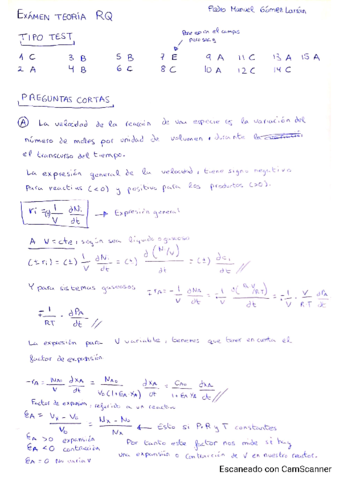 EXÁMEN TEORÍA RQ
Pablo Manuel Gómez
TIPO TEST
1 C 3 B 5 B 7 E 9 A 11 C 13 A 15 A
2 A 4 B 6 C 8 C 10 A 12 C 14 C
PREGUNTAS CORTAS
(A) La velocidad de la reacción de una especie es la variación del
número de moles por unidad de volumen, durante
el transcurso del tiempo.
La expresión general de la velocidad, tiene signo negativo
para reactivos (<0) y positivo para los productos (>0).
→ Expresión general
A V=cte, según sean líquidos o gaseosos
(±ri) = (±) 1/V dNi/dt = (±) d(N/V)/dt = (±) dci/dt //
Y para sistemas gaseosos
1/RT · dPA/dt //
La expresión para V variables, tenemos que tener en cuenta el
factor de expansión
-rA = NA0/V dXA/dt = NA0/V0(1+EA XA) dXA/dt = CA0/1+EA XA dXA/dt //
Factor de expansión, referido a un reactivo
← Esto si P, R y T constantes
EA > 0 expansión
EA < 0 contracción
EA = 0 no varía
Por tanto este factor nos mide si hay
una expansión o contracción de V en nuestro reactor.
Escaneado con CamScanner